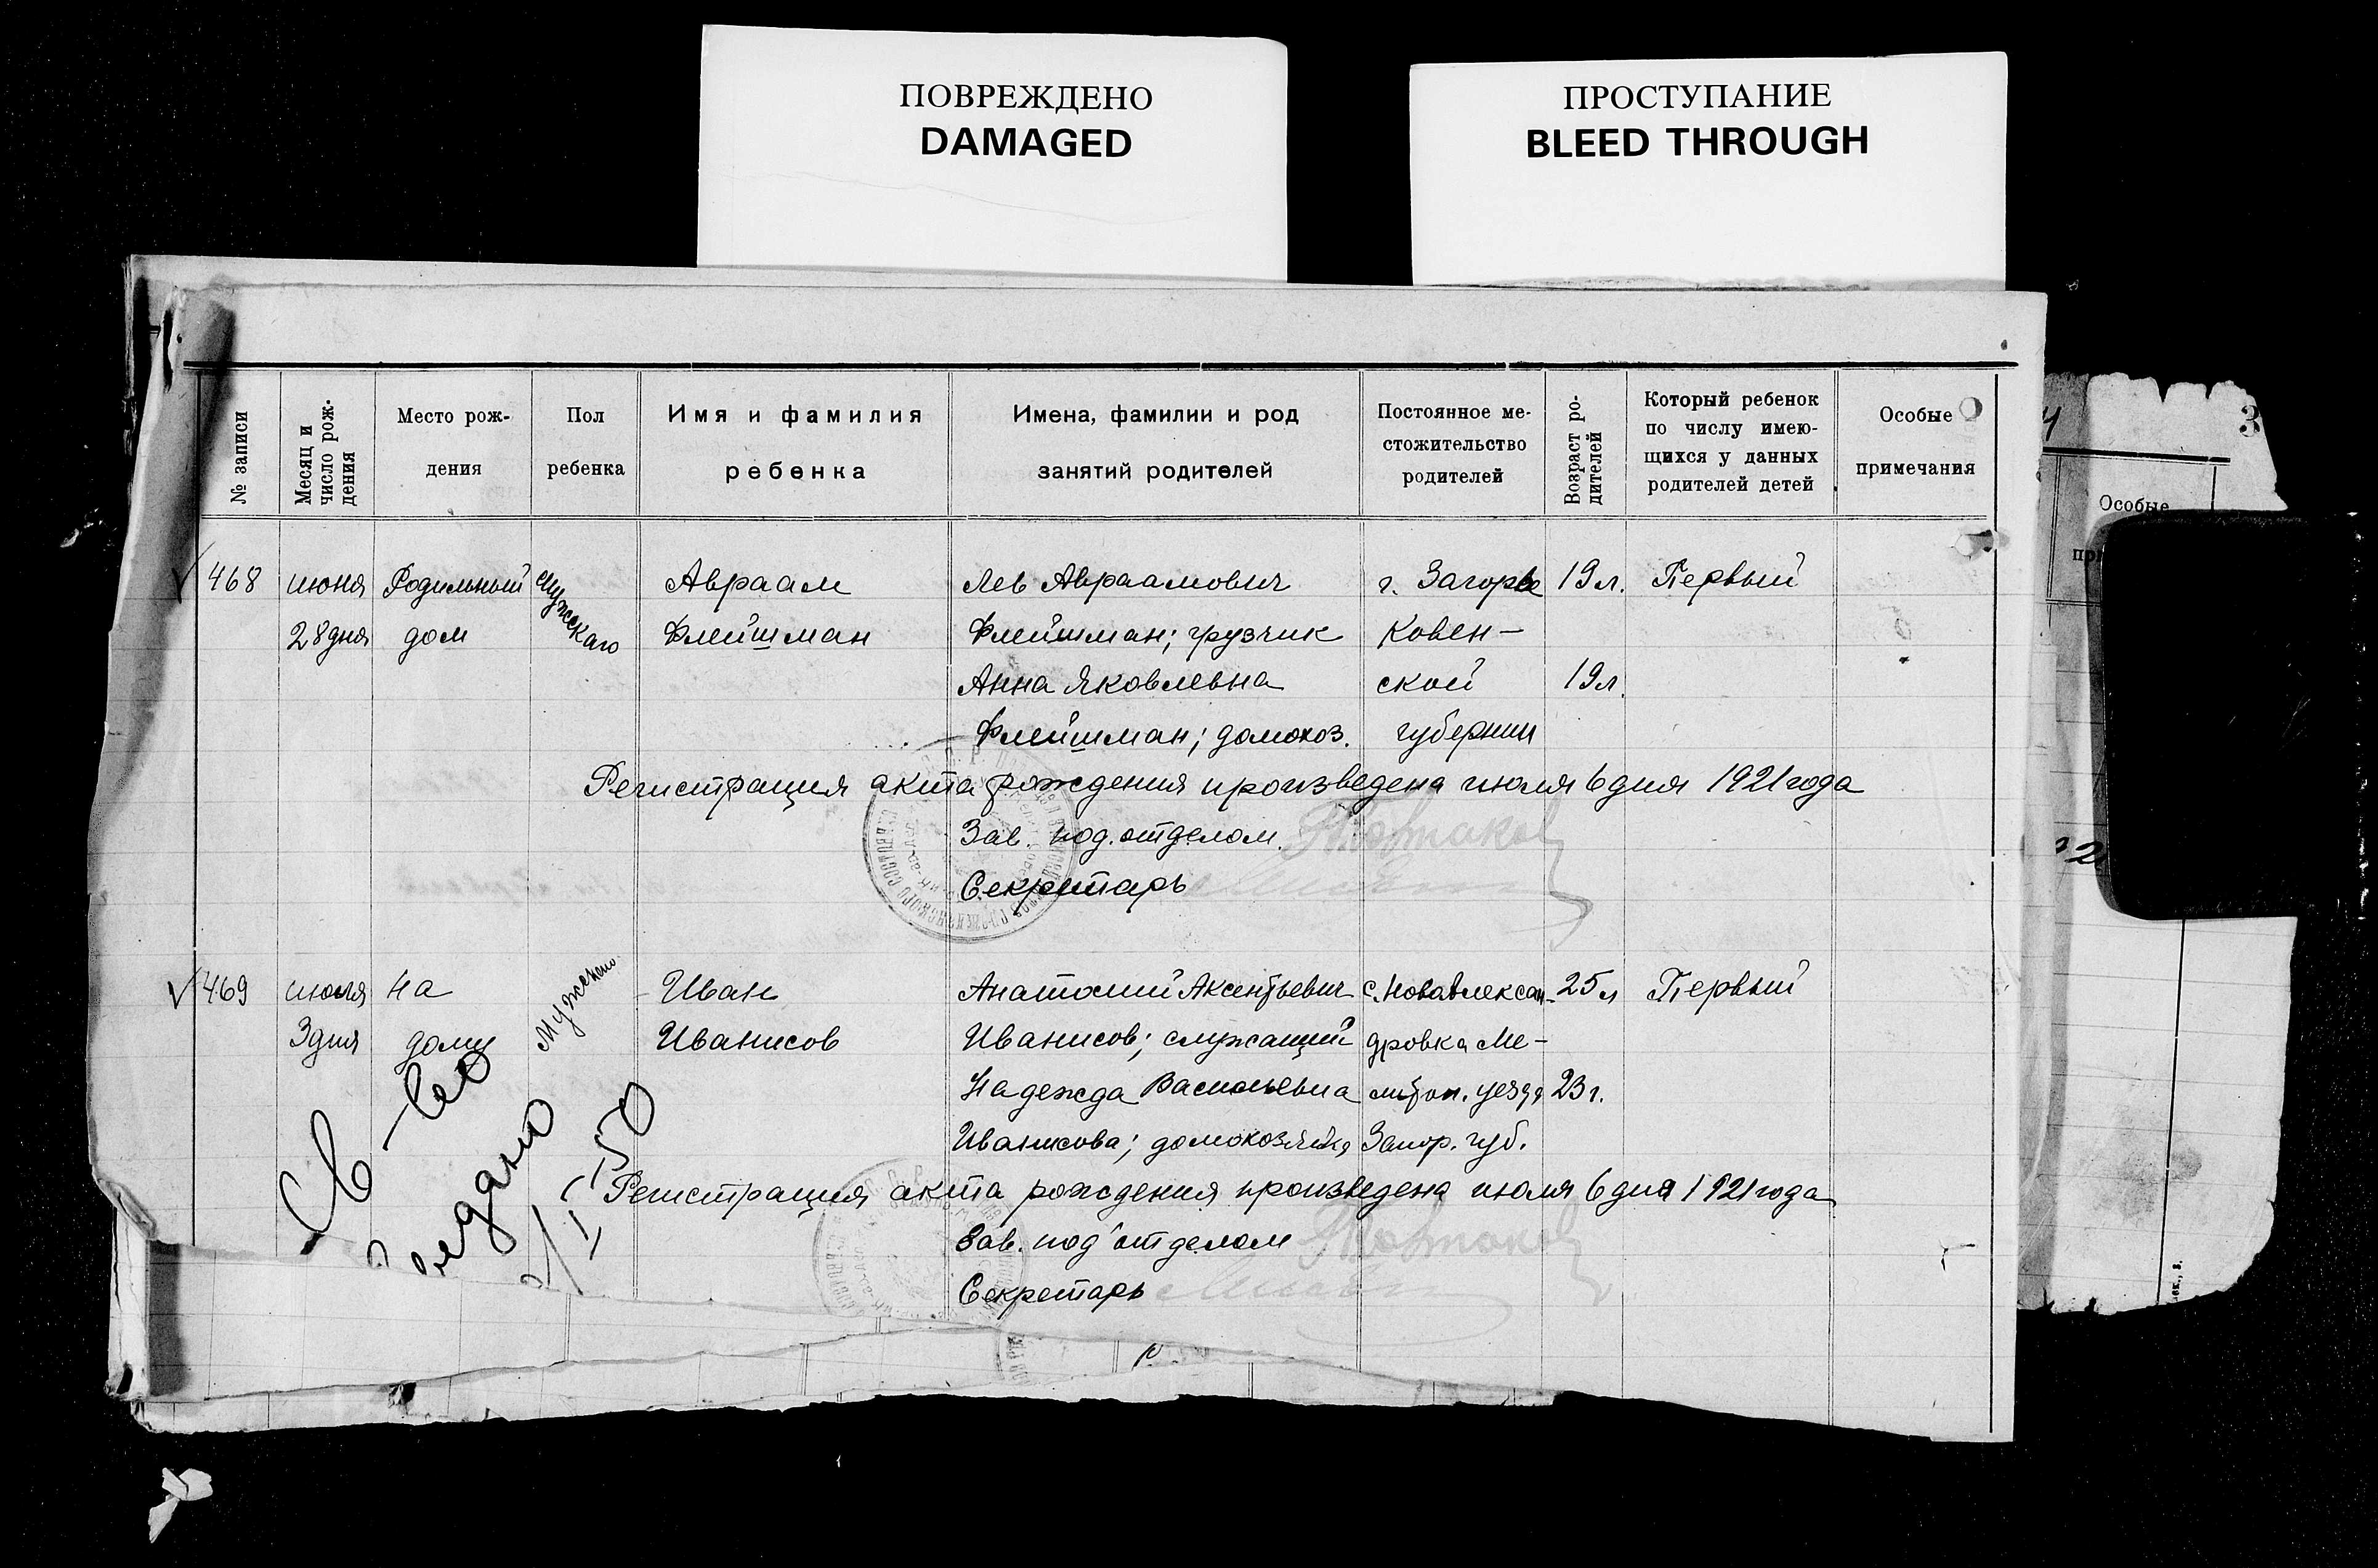 ПОВРЕЖДЕНО
DAMAGED
ПРОСТУПАНИЕ
BLEED THROUGH
№ записи
Месяц и
число рож-
дения
Место рож-
дения
Пол
ребенка
Имя и фамилия
ребенка
Имена, фамилии и род
занятий родителей
Постоянное ме-
стожительство
родителей
Возраст ро-
дителей
Который ребенок
по числу имею-
щихся у данных
родителей детей
Особые
примечания
3
Особые
468 июня Родильный Мужскаго Авраам Лев Авраамович г. Загорье 19 л. Первый
28 дня дом Флейшман Флейшман; грузчик Ковен-
Анна Яковлевна ской 19 л.
Флейшман; домохоз. губернии
Регистрация акта рождения произведена июля 6 дня 1921 года
Зав. под.отделом
Секретарь
469 июля На Мужского Иван Анатолий Аксентьевич с. Новоалексан- 25 л Первый
3 дня дому Иванисов Иванисов; служащий дровка Ме-
Надежда Васильевна литоп. уезда 23 г.
Иванисова; домохозяйка Запор. губ.
Регистрация акта рождения произведена июля 6 дня 1921 года
Зав. под'отделом
Секретарь
Св-во